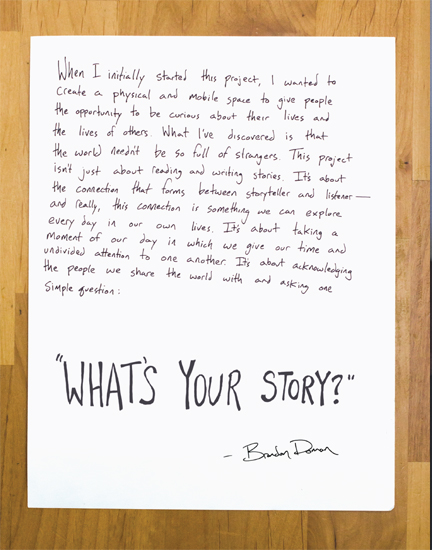 When I initially started this project, I wanted to
create a physical and mobile space to give people
the opportunity to be curious about their lives and
the lives of others. What I've discovered is that
the world needn't be so full of strangers. This project
isn't just about reading and writing stories. It's about
the connection that forms between storyteller and listener—
and really, this connection is something we can explore
every day in our own lives. It's about taking a
moment of our day in which we give our time and
undivided attention to one another. It's about acknowledging
the people we share the world with and asking one
simple question:
"WHAT'S YOUR STORY?"
- Brandon Doman